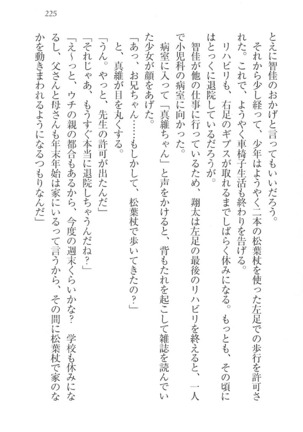 225
とえに智佳のおかげと言ってもいいだろう。
それから少し経って、少年はようやく二本の松葉杖を使った左足での歩行を許可さ
れた。これで、ようやく車椅子生活も終わりを告げる。
リハビリも、右足のギプスが取れるまでしばらく休みになる。もっとも、その頃に
はとっくに退院しているだろうが。
智佳が他の仕事に行っているため、翔太は左足の最後のリハビリを終えると、一人
で小児科の病室に向かった。
病室に入って「真維ちゃん」と声をかけると、背もたれを起こして雑誌を読んでい
た少女が顔をあげた。
「あっ、お兄ちゃん……もしかして、松葉杖で歩いてきたの?」
と、真維が目を丸くする。
「うん。やっと、先生の許可が出たんだ」
「それじゃあ、もうすぐ本当に退院しちゃうんだね?」
「え〜っと、ウチの親の都合もあるから、今度の週末くらいかな? 学校も休みにな
るし、父さんと母さんも年末年始は家にいるって言うから、その間に松葉杖で家のな
かを動きまわれるようになるつもりなんだ」